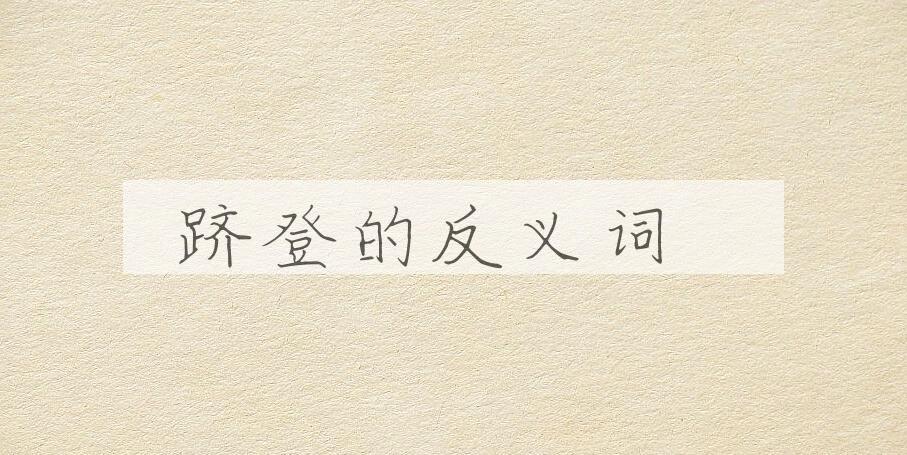 跻登的反义词